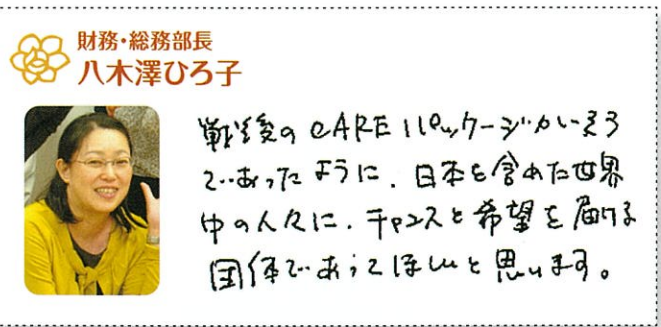 財務・総務部長
八木澤ひろ子
戦後のCAREパッケージがそう
であったように、日本を含めた世界
中の人々に、チャンスと希望を届ける
団体であってほしいと思います。